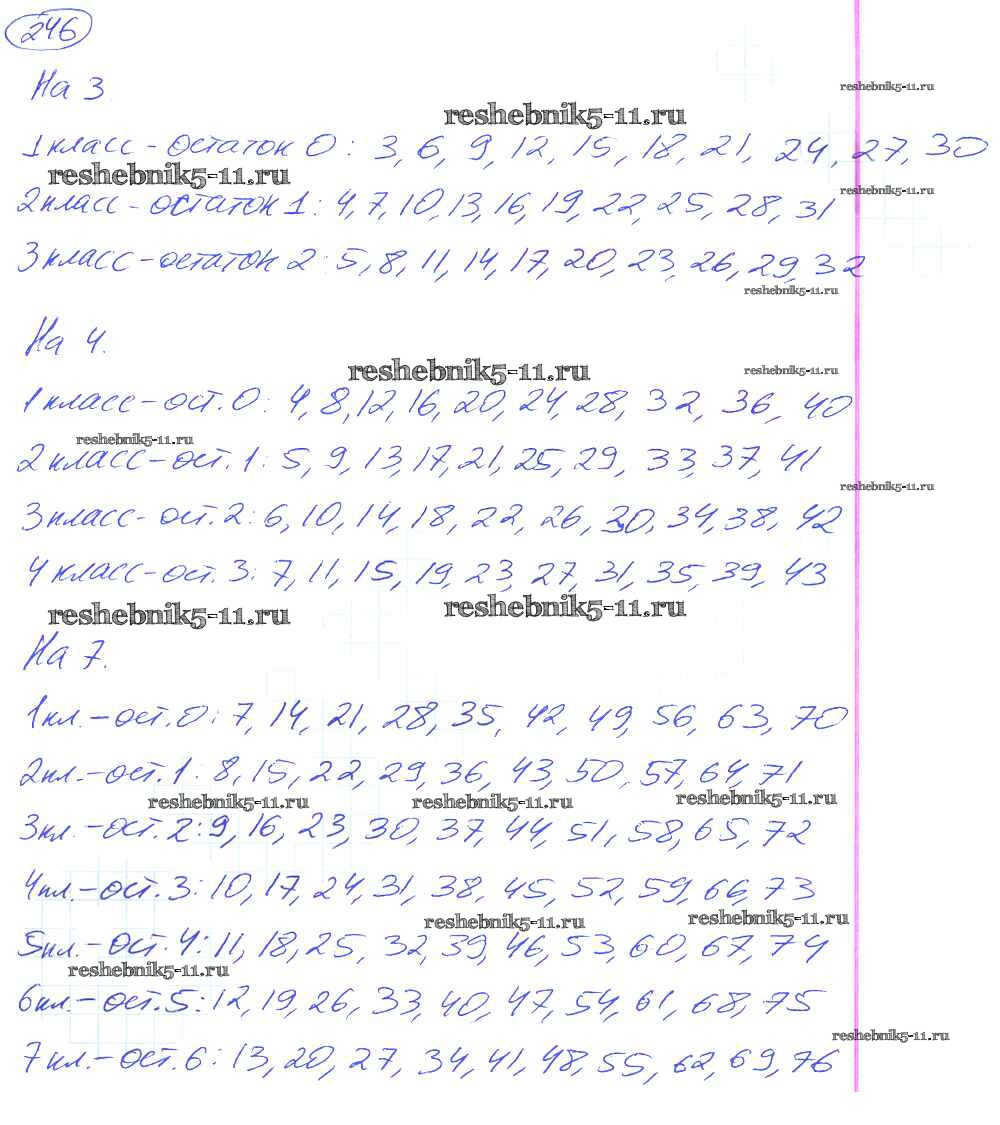 246
На 3
reshebnik5-11.ru
reshebnik5-11.ru
1 класс - остаток 0: 3, 6, 9, 12, 15, 18, 21, 24, 27, 30
reshebnik5-11.ru
reshebnik5-11.ru
2 класс - остаток 1: 4, 7, 10, 13, 16, 19, 22, 25, 28, 31
3 класс - остаток 2: 5, 8, 11, 14, 17, 20, 23, 26, 29, 32
reshebnik5-11.ru
На 4.
reshebnik5-11.ru
reshebnik5-11.ru
1 класс - ост. 0: 4, 8, 12, 16, 20, 24, 28, 32, 36, 40
reshebnik5-11.ru
2 класс - ост. 1: 5, 9, 13, 17, 21, 25, 29, 33, 37, 41
reshebnik5-11.ru
3 класс - ост. 2: 6, 10, 14, 18, 22, 26, 30, 34, 38, 42
4 класс - ост. 3: 7, 11, 15, 19, 23, 27, 31, 35, 39, 43
reshebnik5-11.ru
reshebnik5-11.ru
На 7.
1 кл. - ост. 0: 7, 14, 21, 28, 35, 42, 49, 56, 63, 70
2 кл. - ост. 1: 8, 15, 22, 29, 36, 43, 50, 57, 64, 71
reshebnik5-11.ru
reshebnik5-11.ru
reshebnik5-11.ru
3 кл. - ост. 2: 9, 16, 23, 30, 37, 44, 51, 58, 65, 72
4 кл. - ост. 3: 10, 17, 24, 31, 38, 45, 52, 59, 66, 73
reshebnik5-11.ru
reshebnik5-11.ru
5 кл. - ост. 4: 11, 18, 25, 32, 39, 46, 53, 60, 67, 74
reshebnik5-11.ru
6 кл. - ост. 5: 12, 19, 26, 33, 40, 47, 54, 61, 68, 75
reshebnik5-11.ru
7 кл. - ост. 6: 13, 20, 27, 34, 41, 48, 55, 62, 69, 76